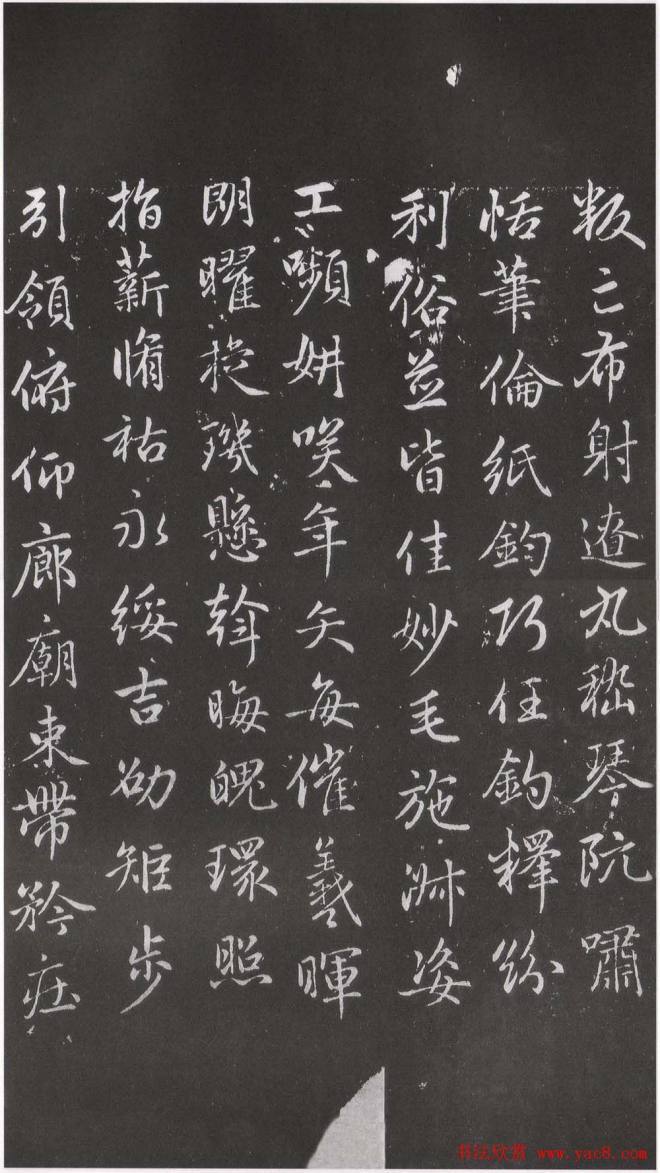 叛亡布射遼丸嵇琴阮嘯
恬筆倫紙鈞巧任釣釋紛
利俗並皆佳妙毛施淑姿
工嚬妍咲年矢每催羲暉
朗曜旋璣懸斡晦魄環照
指薪脩祜永綏吉劭矩步
引領俯仰廊廟束帶矜莊
书法欣赏 www.yac8.com